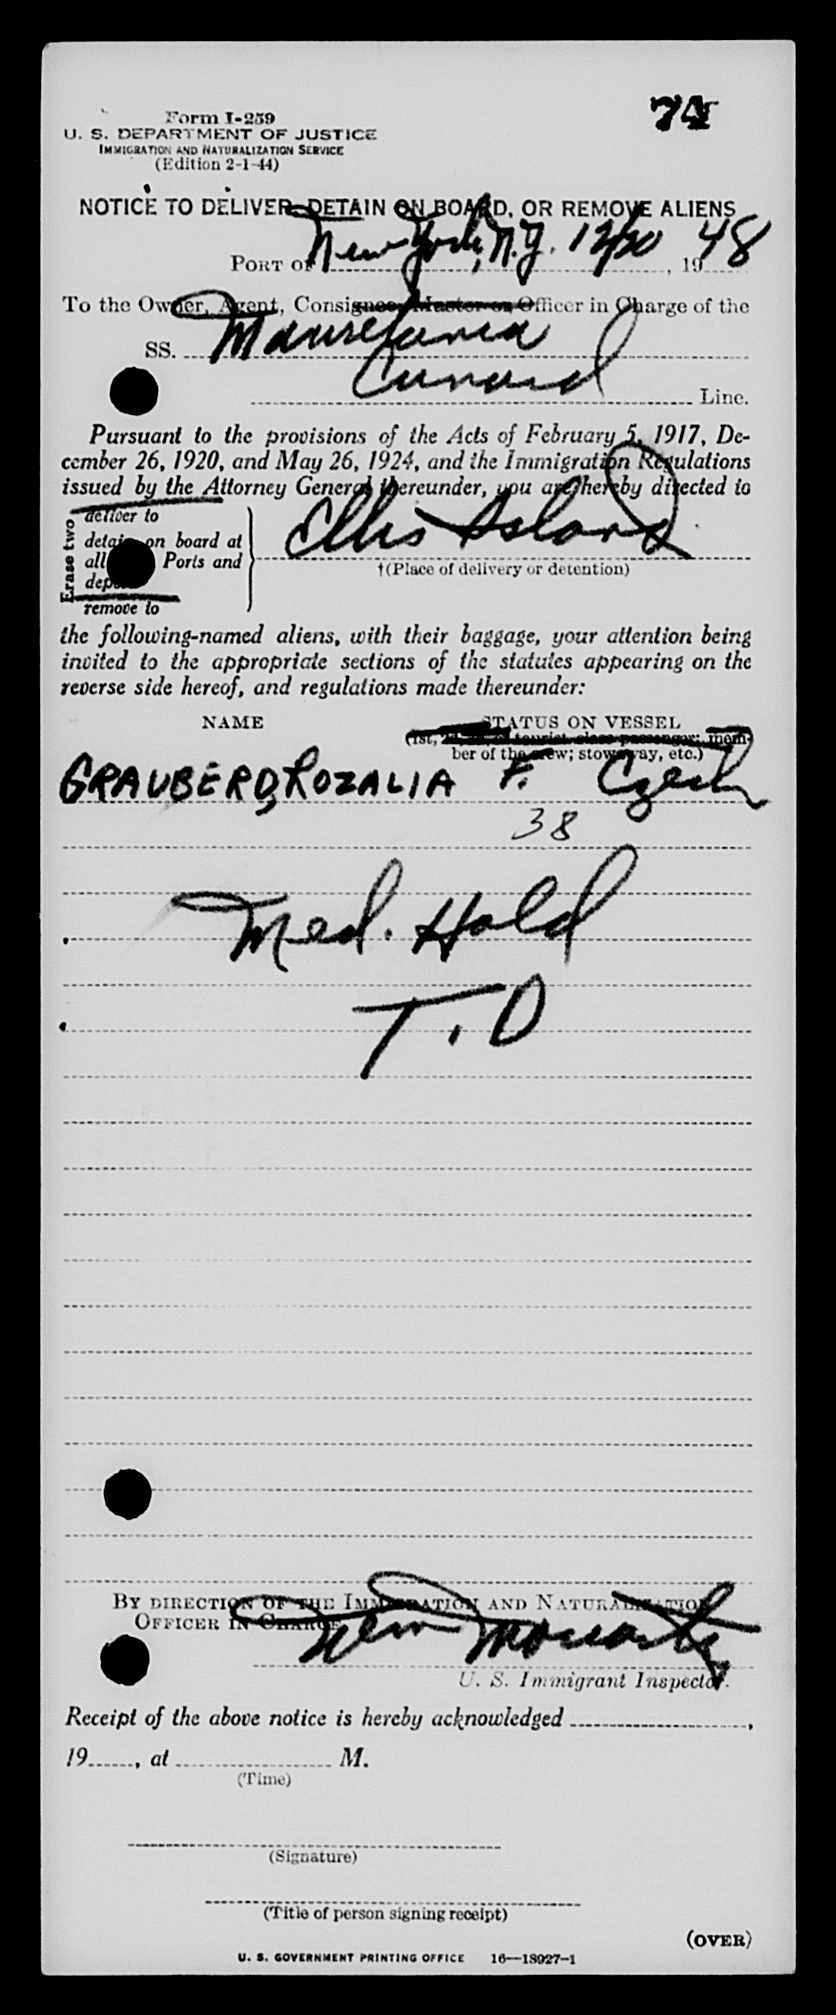 74
Form I-259
U. S. DEPARTMENT OF JUSTICE
IMMIGRATION AND NATURALIZATION SERVICE
(Edition 2-1-44)
NOTICE TO DELIVER, DETAIN ON BOARD, OR REMOVE ALIENS
PORT OF New York, N.Y. 12/20, 1948
To the Owner, Agent, Consignee, Master or Officer in Charge of the
SS. Mauretania
Cunard Line.
Pursuant to the provisions of the Acts of February 5, 1917, De-
cember 26, 1920, and May 26, 1924, and the Immigration Regulations
issued by the Attorney General thereunder, you are hereby directed to
Erase two
deliver to
detain on board at
all Ports and
remove to
Ellis Island
†(Place of delivery or detention)
the following-named aliens, with their baggage, your attention being
invited to the appropriate sections of the statutes appearing on the
reverse side hereof, and regulations made thereunder:
NAME STATUS ON VESSEL
(1st, tourist class passenger; mem-
ber of the crew; stowaway, etc.)
GRAUBERD, ROZALIA F. Czech
38
Med. Hold
T.D
BY DIRECTION OF THE IMMIGRATION AND NATURALIZATION
OFFICER IN CHARGE
Moriarty
U. S. Immigrant Inspector.
Receipt of the above notice is hereby acknowledged ,
19 , at M.
(Time)
(Signature)
(Title of person signing receipt)
(OVER)
U. S. GOVERNMENT PRINTING OFFICE 16—18927-1